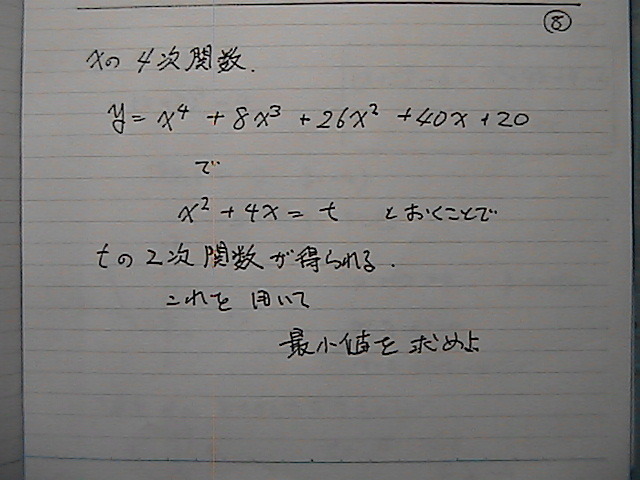 ⑧
xの4次関数.
y = x⁴ + 8x³ + 26x² + 40x + 20
で
x² + 4x = t とおくことで
tの2次関数が得られる.
これを用いて
最小値を求めよ